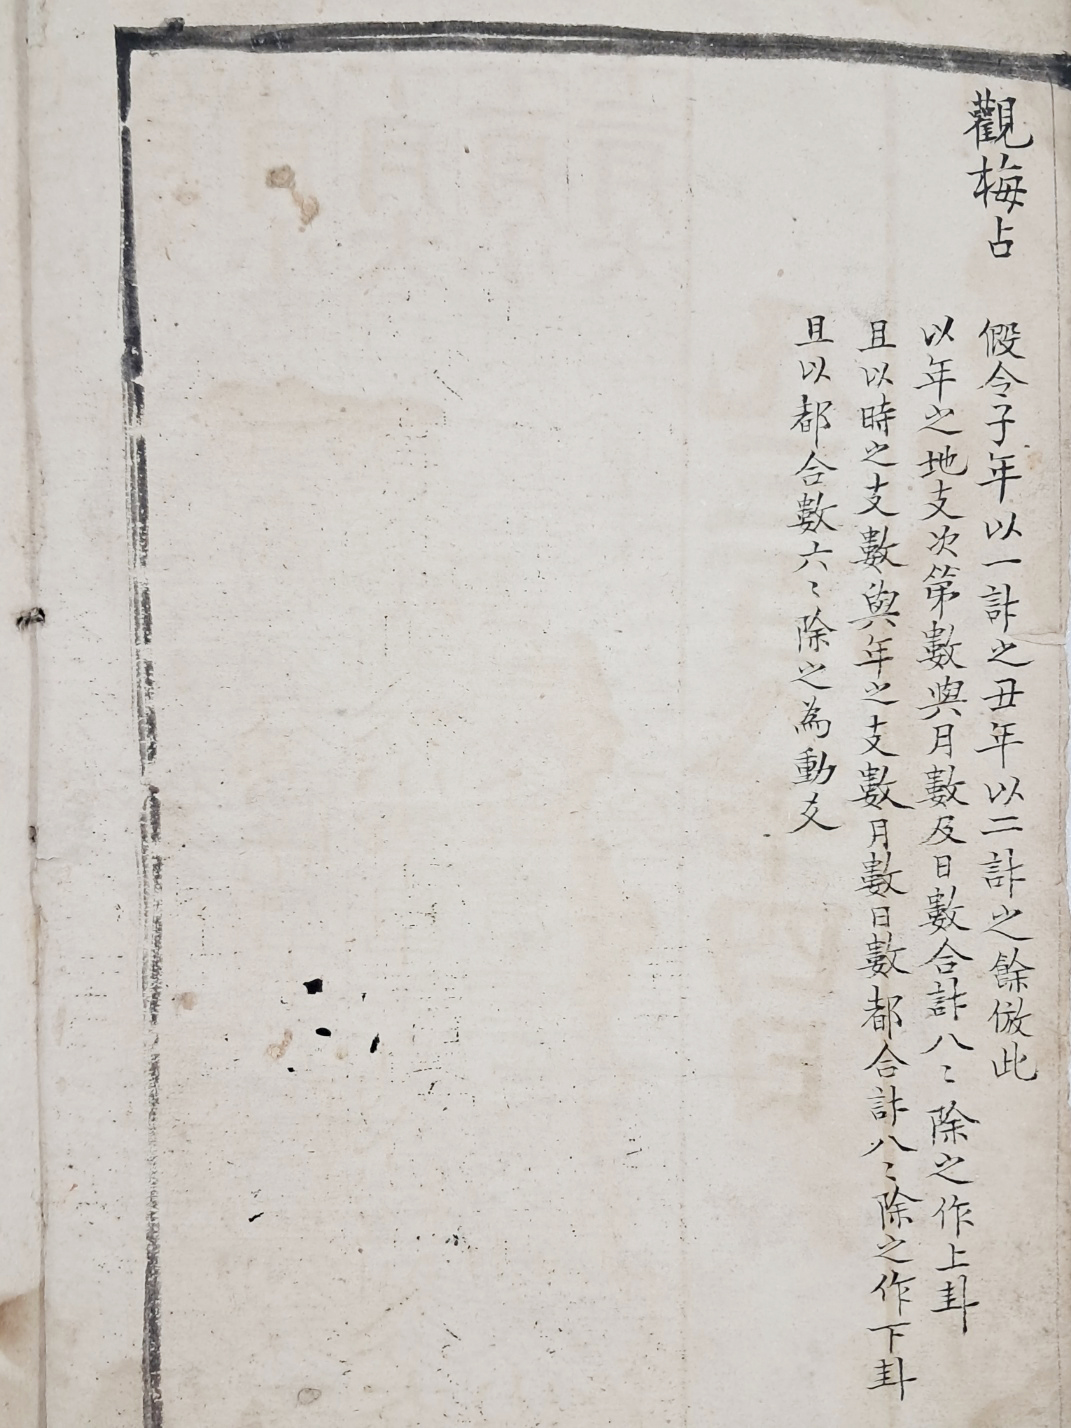 觀梅占
假令子年以一計之丑年以二計之餘倣此
以年之地支次第數與月數及日數合計八〻除之作上卦
且以時之支數與年之支數月數日數都合計八〻除之作下卦
且以都合數六〻除之為動爻